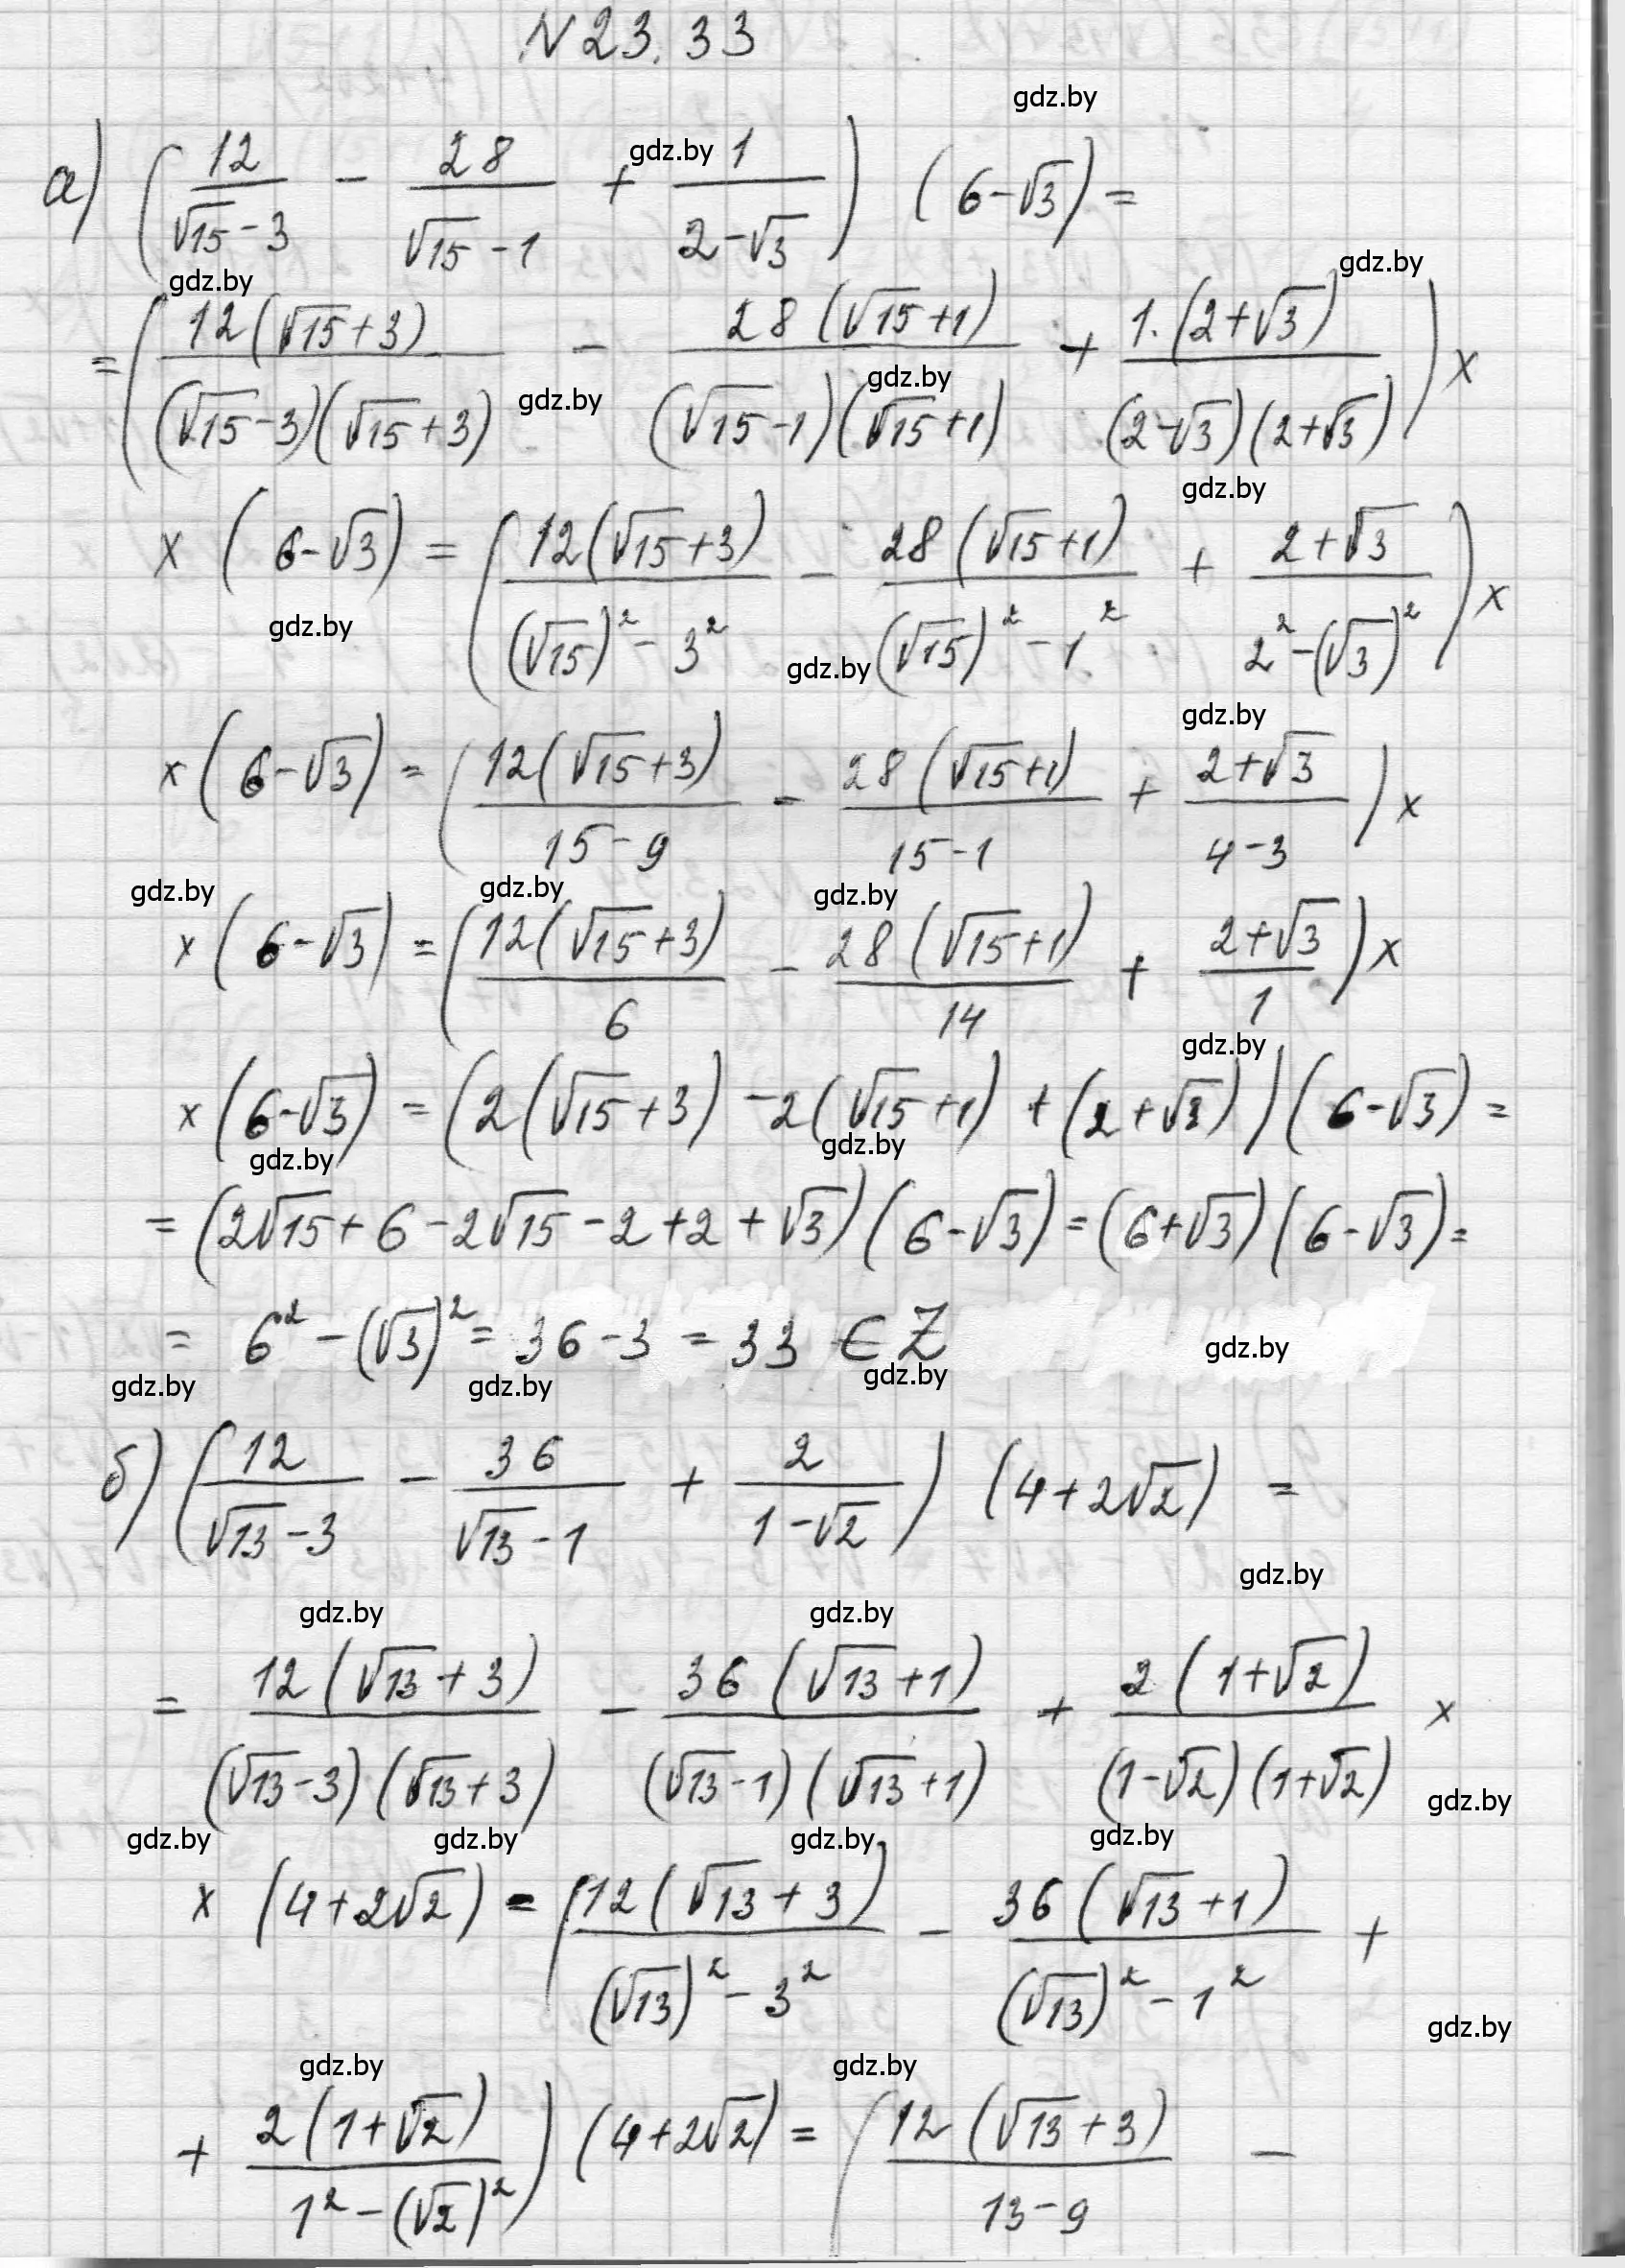 N 23.33
gdz.by
а) (12/(√15-3) - 28/(√15-1) + 1/(2-√3)) (6-√3) =
gdz.by
gdz.by gdz.by
= (12(√15+3)/((√15-3)(√15+3)) - 28(√15+1)/((√15-1)(√15+1)) + 1·(2+√3)/((2-√3)(2+√3))) x
gdz.by gdz.by
gdz.by
x (6-√3) = (12(√15+3)/((√15)²-3²) - 28(√15+1)/((√15)²-1²) + (2+√3)/(2²-(√3)²)) x
gdz.by gdz.by
gdz.by
x (6-√3) = (12(√15+3)/(15-9) - 28(√15+1)/(15-1) + (2+√3)/(4-3)) x
gdz.by gdz.by gdz.by
x (6-√3) = (12(√15+3)/6 - 28(√15+1)/14 + (2+√3)/1) x
gdz.by
x (6-√3) = (2(√15+3) -2(√15+1) + (2+√3)) (6-√3) =
gdz.by gdz.by
= (2√15+6-2√15-2+2+√3) (6-√3) = (6+√3)(6-√3) =
= 6² - (√3)² = 36-3 = 33 ∈ Z
gdz.by
gdz.by gdz.by gdz.by
б) (12/(√13-3) - 36/(√13-1) + 2/(1-√2)) (4+2√2) =
gdz.by
gdz.by gdz.by
= 12(√13+3)/((√13-3)(√13+3)) - 36(√13+1)/((√13-1)(√13+1)) + 2(1+√2)/((1-√2)(1+√2)) x
gdz.by
gdz.by gdz.by gdz.by gdz.by
x (4+2√2) = (12(√13+3)/((√13)²-3²) - 36(√13+1)/((√13)²-1²) +
gdz.by
gdz.by gdz.by
+ 2(1+√2)/(1²-(√2)²)) (4+2√2) = (12(√13+3)/(13-9) -